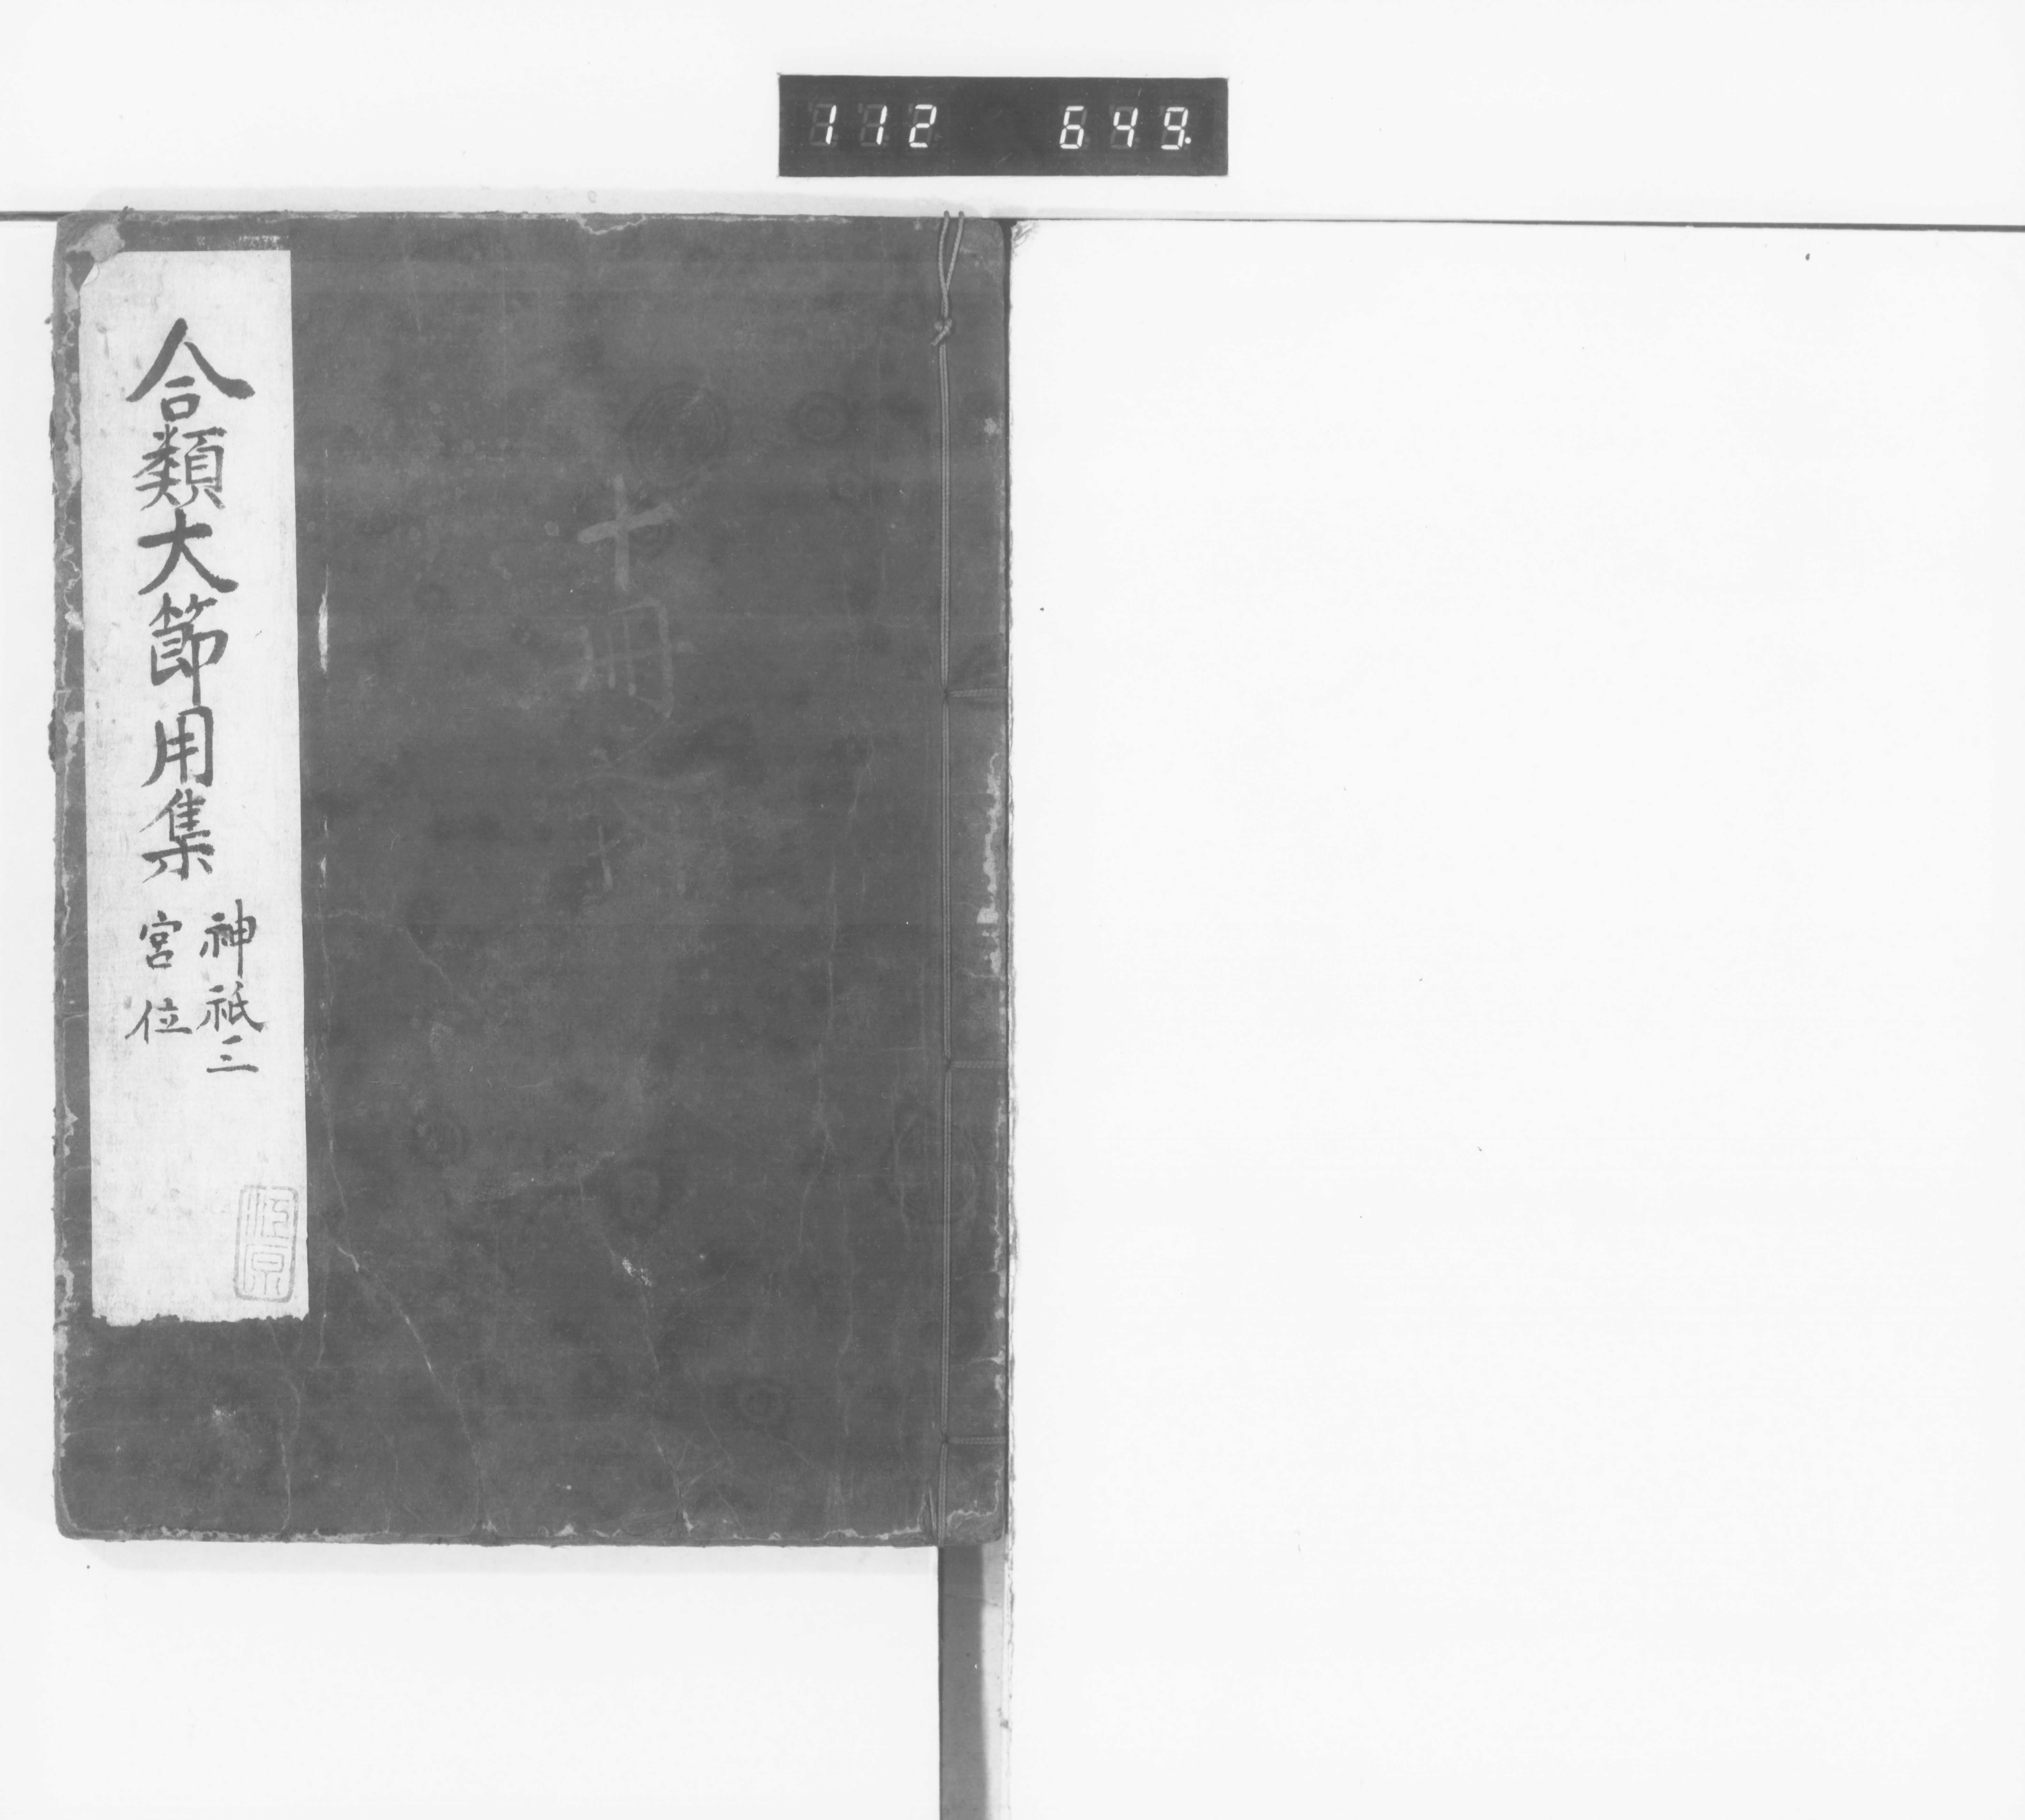 112 649.
合類大節用集
神祇三
宮位
十冊之